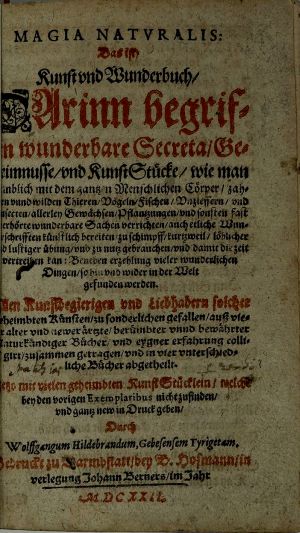 MAGIA NATVRALIS:
Das ist/
Kunst vnd Wunderbuch/
Darinn begrif-
n wunderbare Secreta/Ge-
eimnusse/vnd KunstStücke/wie man
nblich mit dem gantzn Menschlichen Cörper/zah-
n vnnd wilden Thieren/Vögeln/Fischen/Vnzieffern/vnd
nsecten/allerley Gewächsen/Pflantzungen/vnd sonsten fast
erhörte wunderbare Sachen verrichten/auch etliche Wun-
schrifften künstlich bereiten zu schimpff/kurtzweil/löblicher
d lustiger übung/vnd zu nutz gebrauchen/vnd damit die zeit
vertreiben kan: Beneben erzehlung vieler wunderlichen
Dingen/so hin vnd wider in der Welt
gefunden werden.
llen Kunstbegierigen vnd Liebhabern solcher
geheimbten Künsten/zu sonderlichen gefallen/auß vie-
r alter vnd newer ärtzte/berühmbter vnnd bewährter
aturkündiger Bücher/vnd eygner erfahrung colli-
girt/zusammen getragen/vnd in vier vnterschied-
liche Bücher abgetheilt.
etzo mit vielen geheimbten KunstStücklein/welche
bey den vorigen Exemplaribus nicht zufinden/
vnd gantz new in Druck geben/
Durch
Wolffgangum Hildebrandum, Gebesensem Tyrigetam,
Gedruckt zu Darmbstatt/bey B. Hofmann/in
verlegung Johann Berners/im Jahr
M.DCXXII.